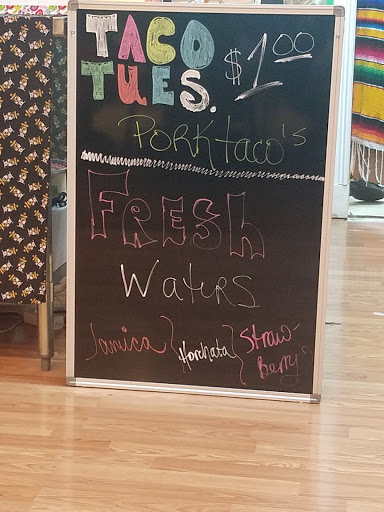 TACO
TUES. $1.00
Pork taco's
FRESH
Waters
Jamica } Horchata } Straw-
Berry